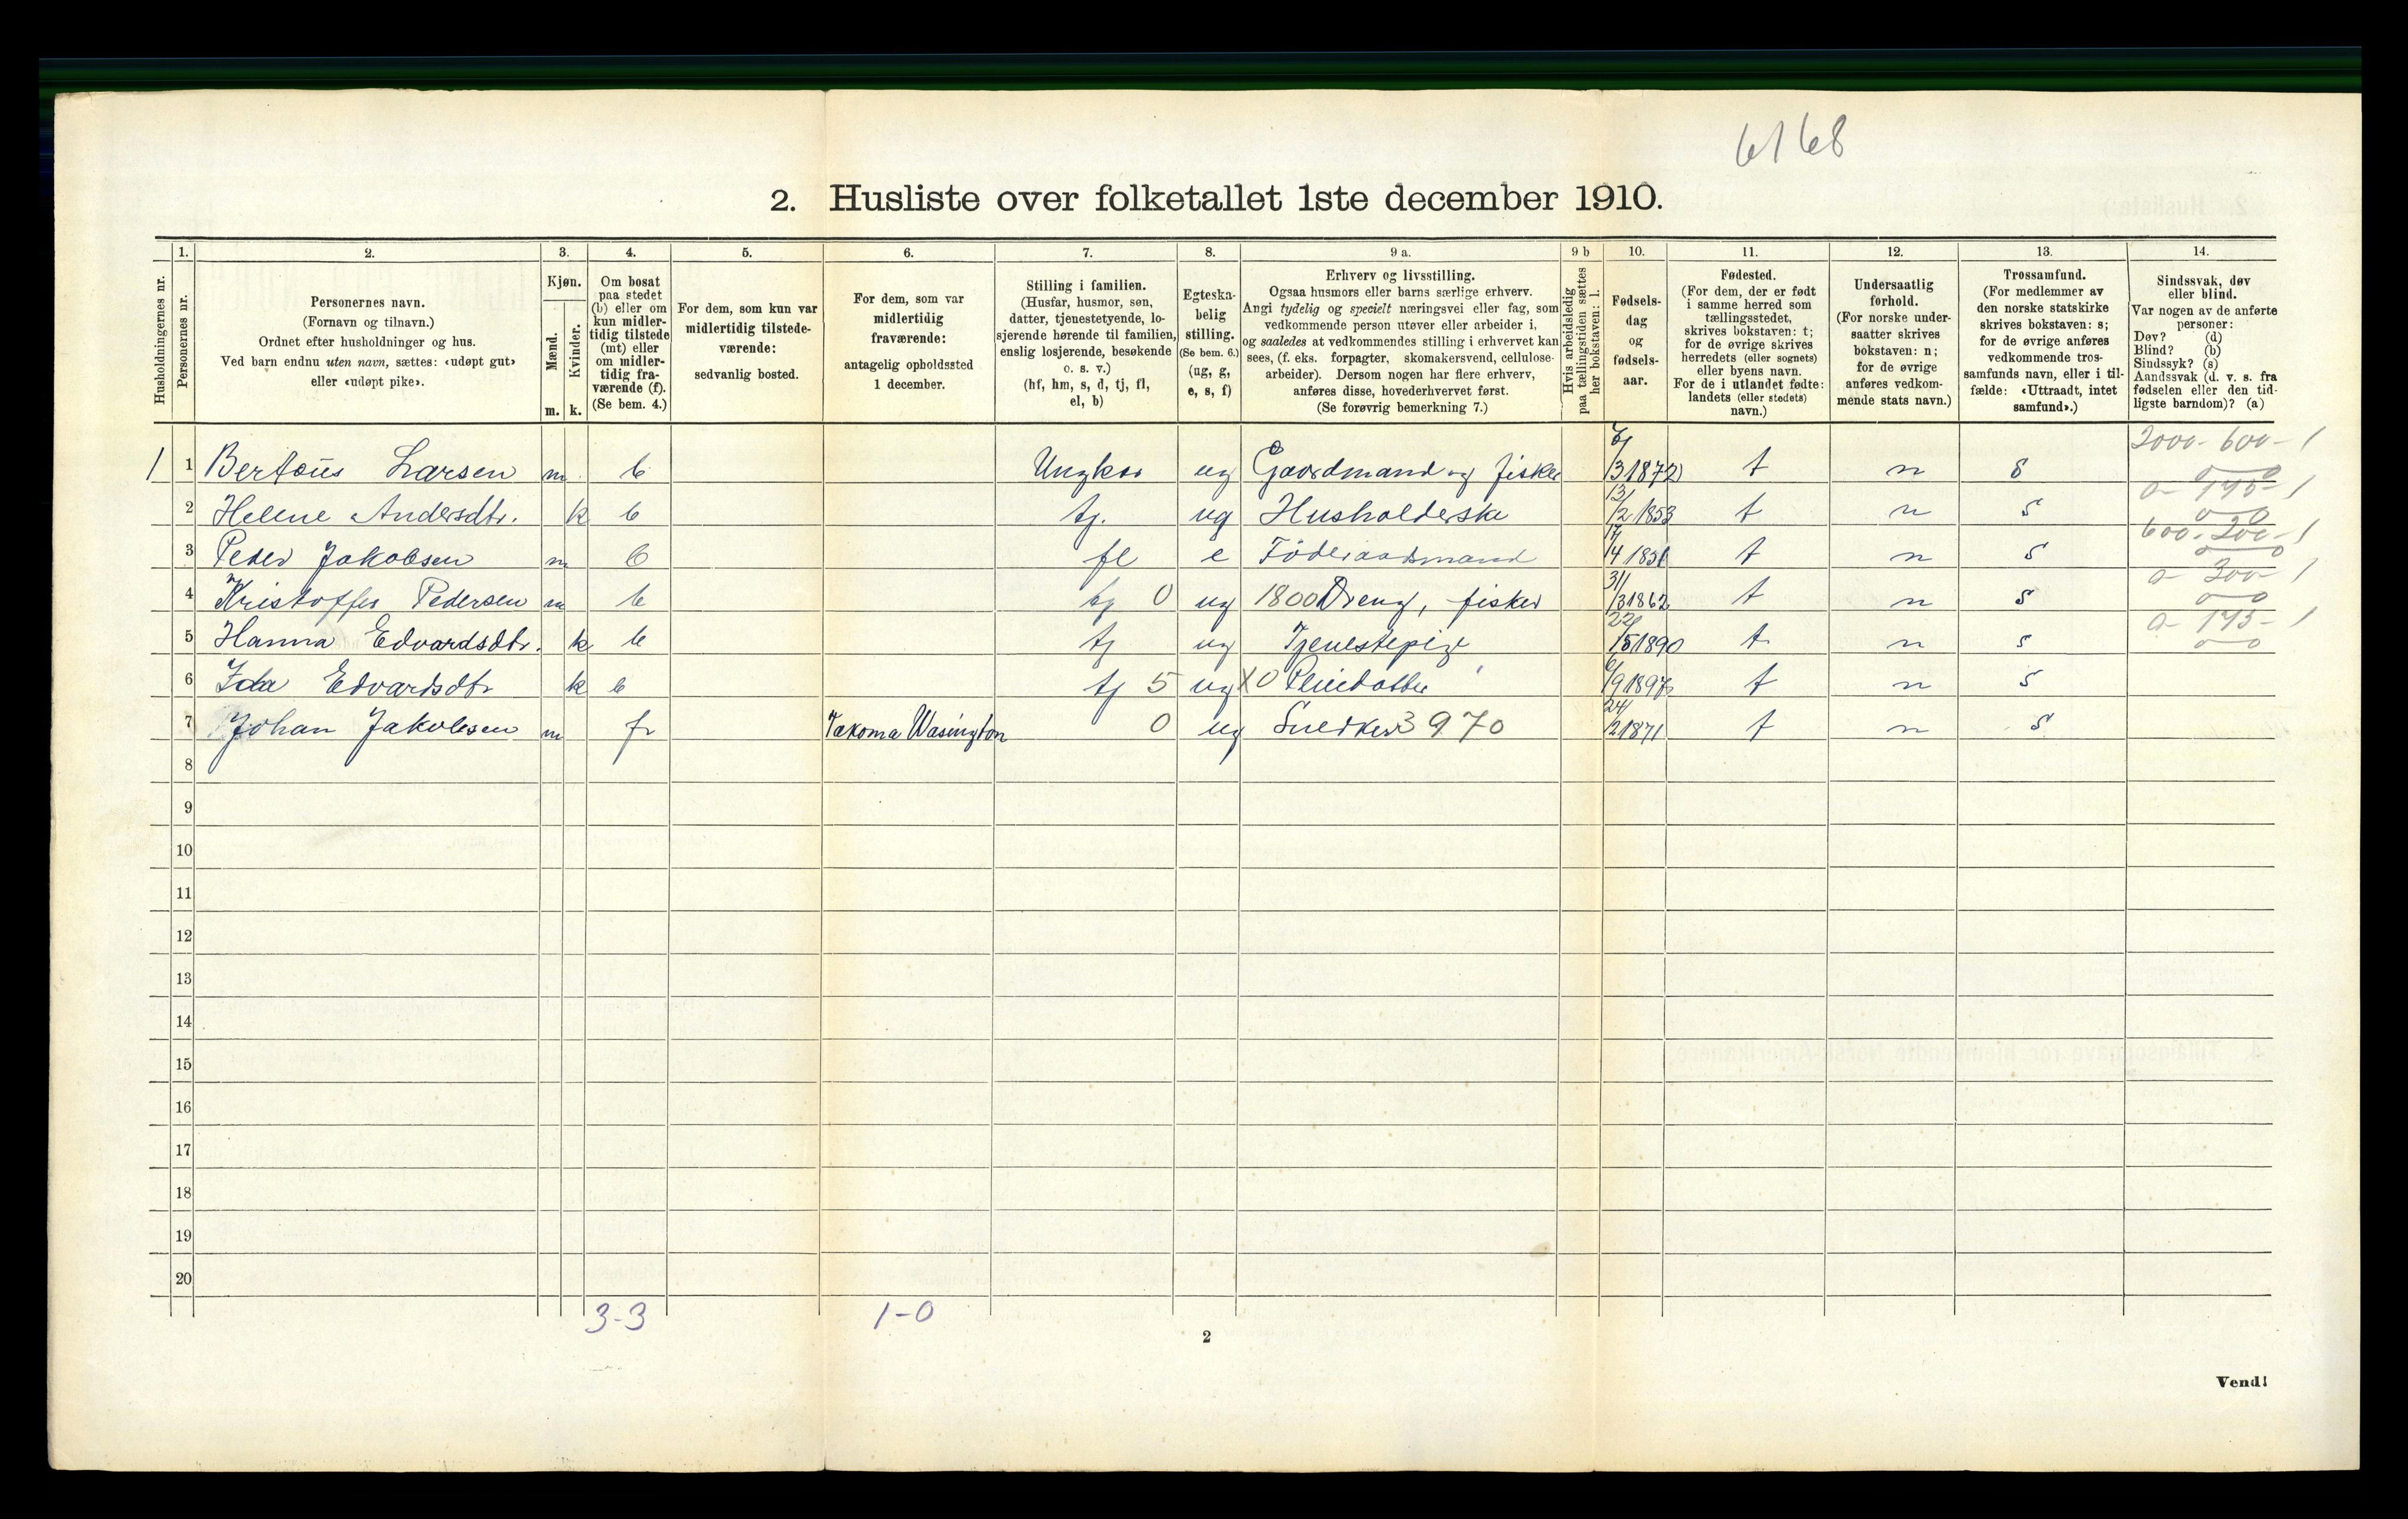 6168
2. Husliste over folketallet 1ste december 1910.
1. 2. 3. 4. 5. 6. 7. 8. 9 a. 9 b 10. 11. 12. 13. 14.
Husholdningernes nr.
Personernes nr.
Personernes navn.
(Fornavn og tilnavn.)
Ordnet efter husholdninger og hus.
Ved barn endnu uten navn, sættes: «udøpt gut»
eller «udøpt pike».
Kjøn.
Mænd.
Kvinder.
m. k.
Om bosat
paa stedet
(b) eller om
kun midler-
tidig tilstede
(mt) eller
om midler-
tidig fra-
værende (f).
(Se bem. 4.)
For dem, som kun var
midlertidig tilstede-
værende:
sedvanlig bosted.
For dem, som var
midlertidig
fraværende:
antagelig opholdssted
1 december.
Stilling i familien.
(Husfar, husmor, søn,
datter, tjenestetyende, lo-
sjerende hørende til familien,
enslig losjerende, besøkende
o. s. v.)
(hf, hm, s, d, tj, fl,
el, b)
Egteska-
belig
stilling.
(Se bem. 6.)
(ug, g,
e, s, f)
Erhverv og livsstilling.
Ogsaa husmors eller barns særlige erhverv.
Angi tydelig og specielt næringsvei eller fag, som
vedkommende person utøver eller arbeider i,
og saaledes at vedkommendes stilling i erhvervet kan
sees, (f. eks. forpagter, skomakersvend, cellulose-
arbeider). Dersom nogen har flere erhverv,
anføres disse, hovederhvervet først.
(Se forøvrig bemerkning 7.)
Hvis arbeidsledig
paa tællingstiden sættes
her bokstaven: l.
Fødsels-
dag
og
fødsels-
aar.
Fødested.
(For dem, der er født
i samme herred som
tællingsstedet,
skrives bokstaven: t;
for de øvrige skrives
herredets (eller sognets)
eller byens navn.
For de i utlandet fødte:
landets (eller stedets)
navn.)
Undersaatlig
forhold.
(For norske under-
saatter skrives
bokstaven: n;
for de øvrige
anføres vedkom-
mende stats navn.)
Trossamfund.
(For medlemmer av
den norske statskirke
skrives bokstaven: s;
for de øvrige anføres
vedkommende tros-
samfunds navn, eller i til-
fælde: «Uttraadt, intet
samfund».)
Sindssvak, døv
eller blind.
Var nogen av de anførte
personer:
Døv? (d)
Blind? (b)
Sindssyk? (s)
Aandssvak (d. v. s. fra
fødselen eller den tid-
ligste barndom)? (a)
1 1 Bertæus Larsen m. b Ungkar ug Gaardmand og fisker 6/3 1872 t n s 2000-600-1
2 Helene Andersdtr. k b tj. ug Husholderske 13/2 1853 t n s 0-175-1
3 Peder Jakobsen m b fl e Föderaadsmand 17/4 1831 t n s 600-200-1
4 Kristoffer Pedersen m b tj 0 ug 1800 Dreng, fisker 31/3 1862 t n s 0-300-1
5 Hanna Edvardsdtr. k b tj ug Tjenestepige 22/5 1890 t n s 0-175-1
6 Ida Edvardsdtr k b tj 5 ug X0 Pleiedatter 6/9 1897 t n s
7 Johan Jakobsen m fr Takoma Wasington 0 ug Snedker 3970 24/2 1871 t n s
8
9
10
11
12
13
14
15
16
17
18
19
20
3-3 1-0
2
Vend!